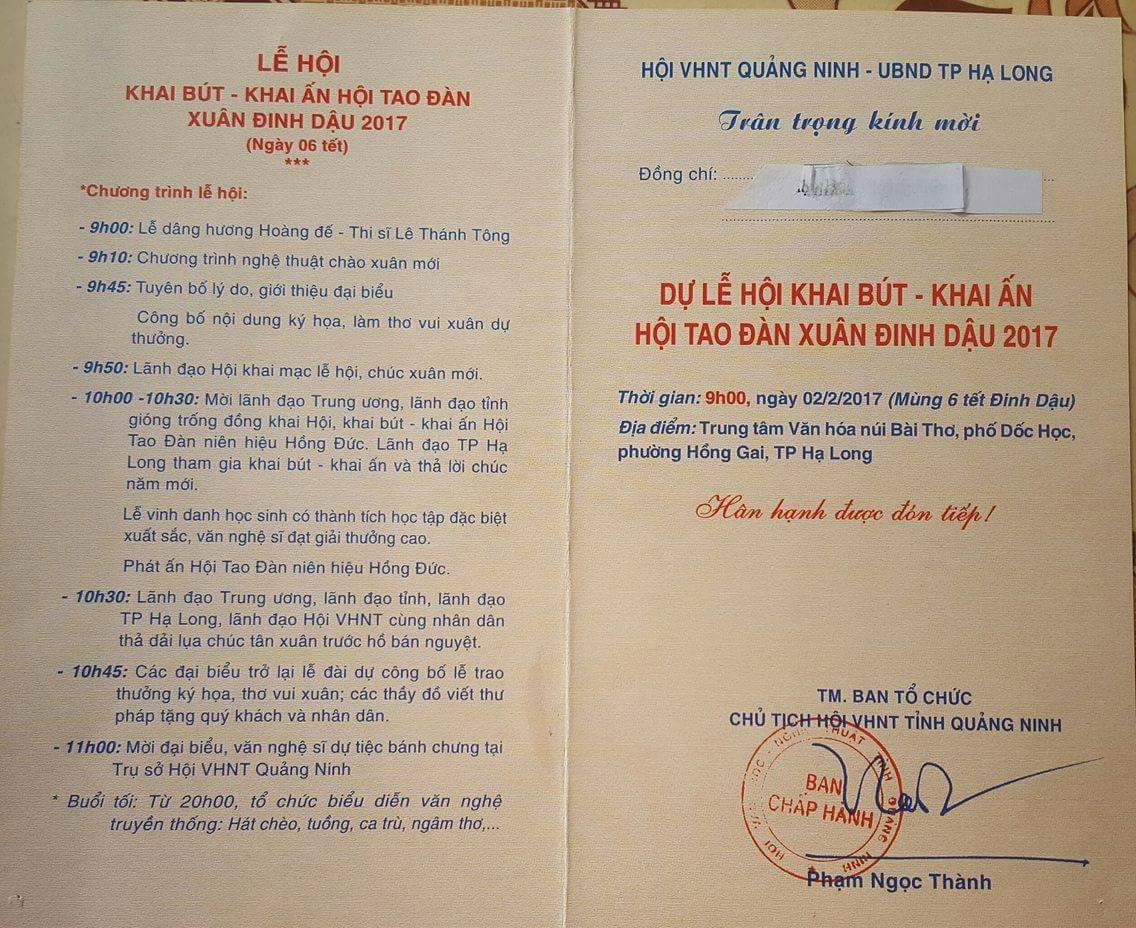 LỄ HỘI
KHAI BÚT - KHAI ẤN HỘI TAO ĐÀN
XUÂN ĐINH DẬU 2017
(Ngày 06 tết)
***
*Chương trình lễ hội:
- 9h00: Lễ dâng hương Hoàng đế - Thi sĩ Lê Thánh Tông
- 9h10: Chương trình nghệ thuật chào xuân mới
- 9h45: Tuyên bố lý do, giới thiệu đại biểu
Công bố nội dung ký họa, làm thơ vui xuân dự
thưởng.
- 9h50: Lãnh đạo Hội khai mạc lễ hội, chúc xuân mới.
- 10h00 -10h30: Mời lãnh đạo Trung ương, lãnh đạo tỉnh
gióng trống đồng khai Hội, khai bút - khai ấn Hội
Tao Đàn niên hiệu Hồng Đức. Lãnh đạo TP Hạ
Long tham gia khai bút - khai ấn và thả lời chúc
năm mới.
Lễ vinh danh học sinh có thành tích học tập đặc biệt
xuất sắc, văn nghệ sĩ đạt giải thưởng cao.
Phát ấn Hội Tao Đàn niên hiệu Hồng Đức.
- 10h30: Lãnh đạo Trung ương, lãnh đạo tỉnh, lãnh đạo
TP Hạ Long, lãnh đạo Hội VHNT cùng nhân dân
thả dải lụa chúc tân xuân trước hồ bán nguyệt.
- 10h45: Các đại biểu trở lại lễ đài dự công bố lễ trao
thưởng ký họa, thơ vui xuân; các thầy đồ viết thư
pháp tặng quý khách và nhân dân.
- 11h00: Mời đại biểu, văn nghệ sĩ dự tiệc bánh chưng tại
Trụ sở Hội VHNT Quảng Ninh
* Buổi tối: Từ 20h00, tổ chức biểu diễn văn nghệ
truyền thống: Hát chèo, tuồng, ca trù, ngâm thơ,...
HỘI VHNT QUẢNG NINH - UBND TP HẠ LONG
Trân trọng kính mời
Đồng chí:
DỰ LỄ HỘI KHAI BÚT - KHAI ẤN
HỘI TAO ĐÀN XUÂN ĐINH DẬU 2017
Thời gian: 9h00, ngày 02/2/2017 (Mùng 6 tết Đinh Dậu)
Địa điểm: Trung tâm Văn hóa núi Bài Thơ, phố Dốc Học,
phường Hồng Gai, TP Hạ Long
Hân hạnh được đón tiếp!
TM. BAN TỔ CHỨC
CHỦ TỊCH HỘI VHNT TỈNH QUẢNG NINH
BAN
CHẤP HÀNH
THUẬT TỈNH QUẢNG NINH
HỘI
Phạm Ngọc Thành